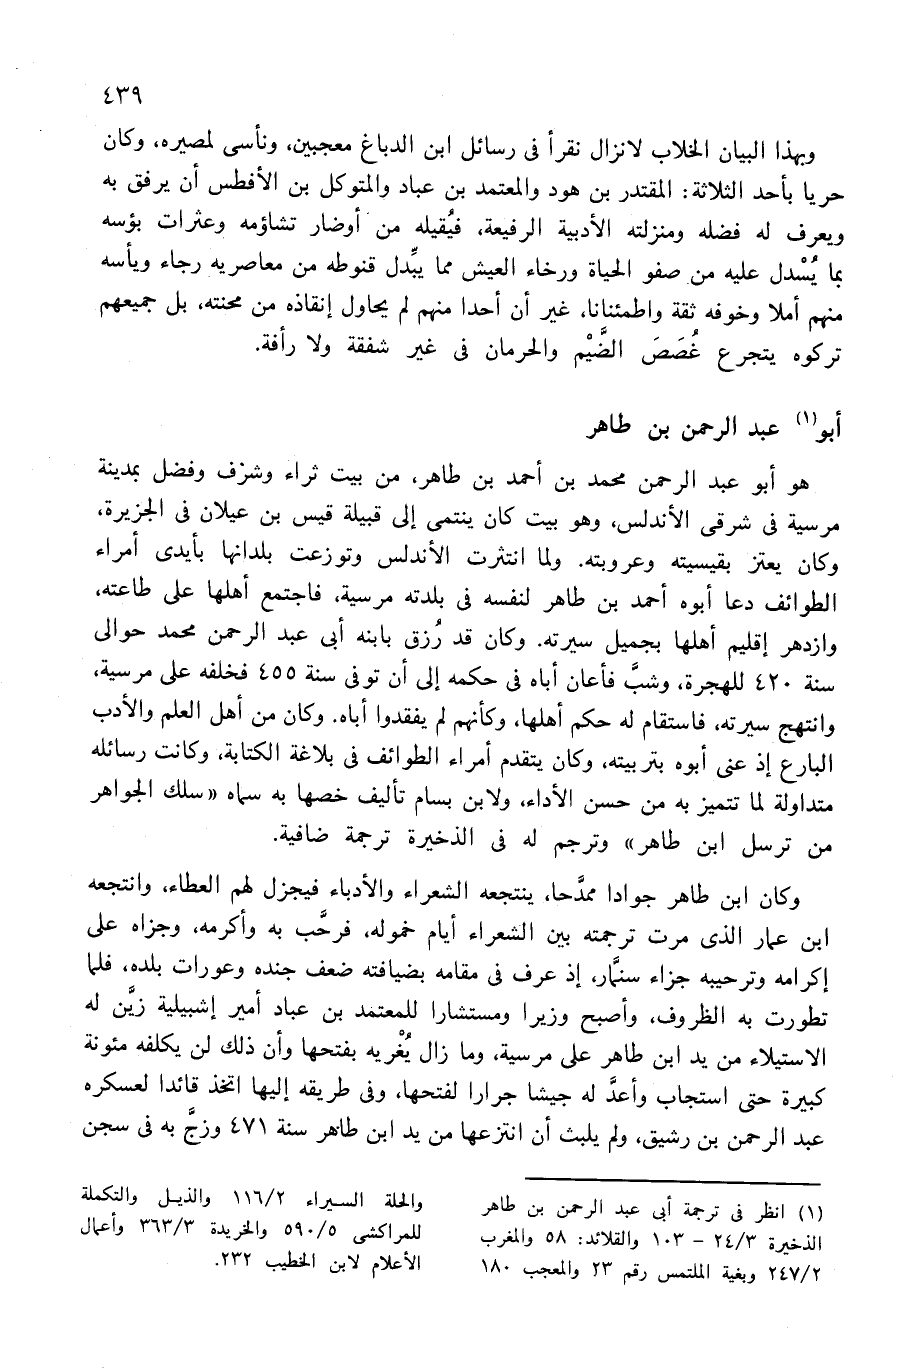 ٤٣٩
وبهذا البيان الخلاب لانزال نقرأ فى رسائل ابن الدباغ معجبين، ونأسى لمصيره، وكان
حريا بأحد الثلاثة: المقتدر بن هود والمعتمد بن عباد والمتوكل بن الأفطس أن يرفق به
ويعرف له فضله ومنزلته الأدبية الرفيعة، فيُقيله من أوضار تشاؤمه وعثرات بؤسه
بما يُسْدل عليه من صفو الحياة ورخاء العيش مما يبِّدل قنوطه من معاصريه رجاء ويأسه
منهم أملا وخوفه ثقة واطمئنانا، غير أن أحدا منهم لم يحاول إنقاذه من محنته، بل جميعهم
تركوه يتجرع غُصَصَ الضَّيْم والحرمان فى غير شفقة ولا رأفة.
أبو(١) عبد الرحمن بن طاهر
هو أبو عبد الرحمن محمد بن أحمد بن طاهر، من بيت ثراء وشرف وفضل بمدينة
مرسية فى شرقى الأندلس، وهو بيت كان ينتمى إلى قبيلة قيس بن عيلان فى الجزيرة،
وكان يعتز بقيسيته وعروبته. ولما انتثرت الأندلس وتوزعت بلدانها بأيدى أمراء
الطوائف دعا أبوه أحمد بن طاهر لنفسه فى بلدته مرسية، فاجتمع أهلها على طاعته،
وازدهر إقليم أهلها بجميل سيرته. وكان قد رُزق بابنه أبى عبد الرحمن محمد حوالى
سنة ٤٢٠ للهجرة، وشبَّ فأعان أباه فى حكمه إلى أن توفى سنة ٤٥٥ فخلفه على مرسية،
وانتهج سيرته، فاستقام له حكم أهلها، وكأنهم لم يفقدوا أباه. وكان من أهل العلم والأدب
البارع إذ عنى أبوه بتربيته، وكان يتقدم أمراء الطوائف فى بلاغة الكتابة، وكانت رسائله
متداولة لما تتميز به من حسن الأداء، ولابن بسام تأليف خصها به سماه «سلك الجواهر
من ترسل ابن طاهر» وترجم له فى الذخيرة ترجمة ضافية.
وكان ابن طاهر جوادا ممدَّحا، ينتجعه الشعراء والأدباء فيجزل لهم العطاء، وانتجعه
ابن عمار الذى مرت ترجمته بين الشعراء أيام خموله، فرحَّب به وأكرمه، وجزاه على
إكرامه وترحيبه جزاء سنمَّار، إذ عرف فى مقامه بضيافته ضعف جنده وعورات بلده، فلما
تطورت به الظروف، وأصبح وزيرا ومستشارا للمعتمد بن عباد أمير إشبيلية زيَّن له
الاستيلاء من يد ابن طاهر على مرسية، وما زال يُغْريه بفتحها وأن ذلك لن يكلفه مئونة
كبيرة حتى استجاب وأعدَّ له جيشا جرارا لفتحها، وفى طريقه إليها اتخذ قائدا لعسكره
عبد الرحمن بن رشيق، ولم يلبث أن انتزعها من يد ابن طاهر سنة ٤٧١ وزجَّ به فى سجن
(١) انظر فى ترجمة أبى عبد الرحمن بن طاهر
الذخيرة ٢٤/٣ - ١٠٣ والقلائد: ٥٨ والمغرب
٢٤٧/٢ وبغية الملتمس رقم ٢٣ والمعجب ١٨٠
والحلة السيراء ١١٦/٢ والذيل والتكملة
للمراكشى ٥٩٠/٥ والخريدة ٣٦٣/٣ وأعمال
الأعلام لابن الخطيب ٢٣٢.